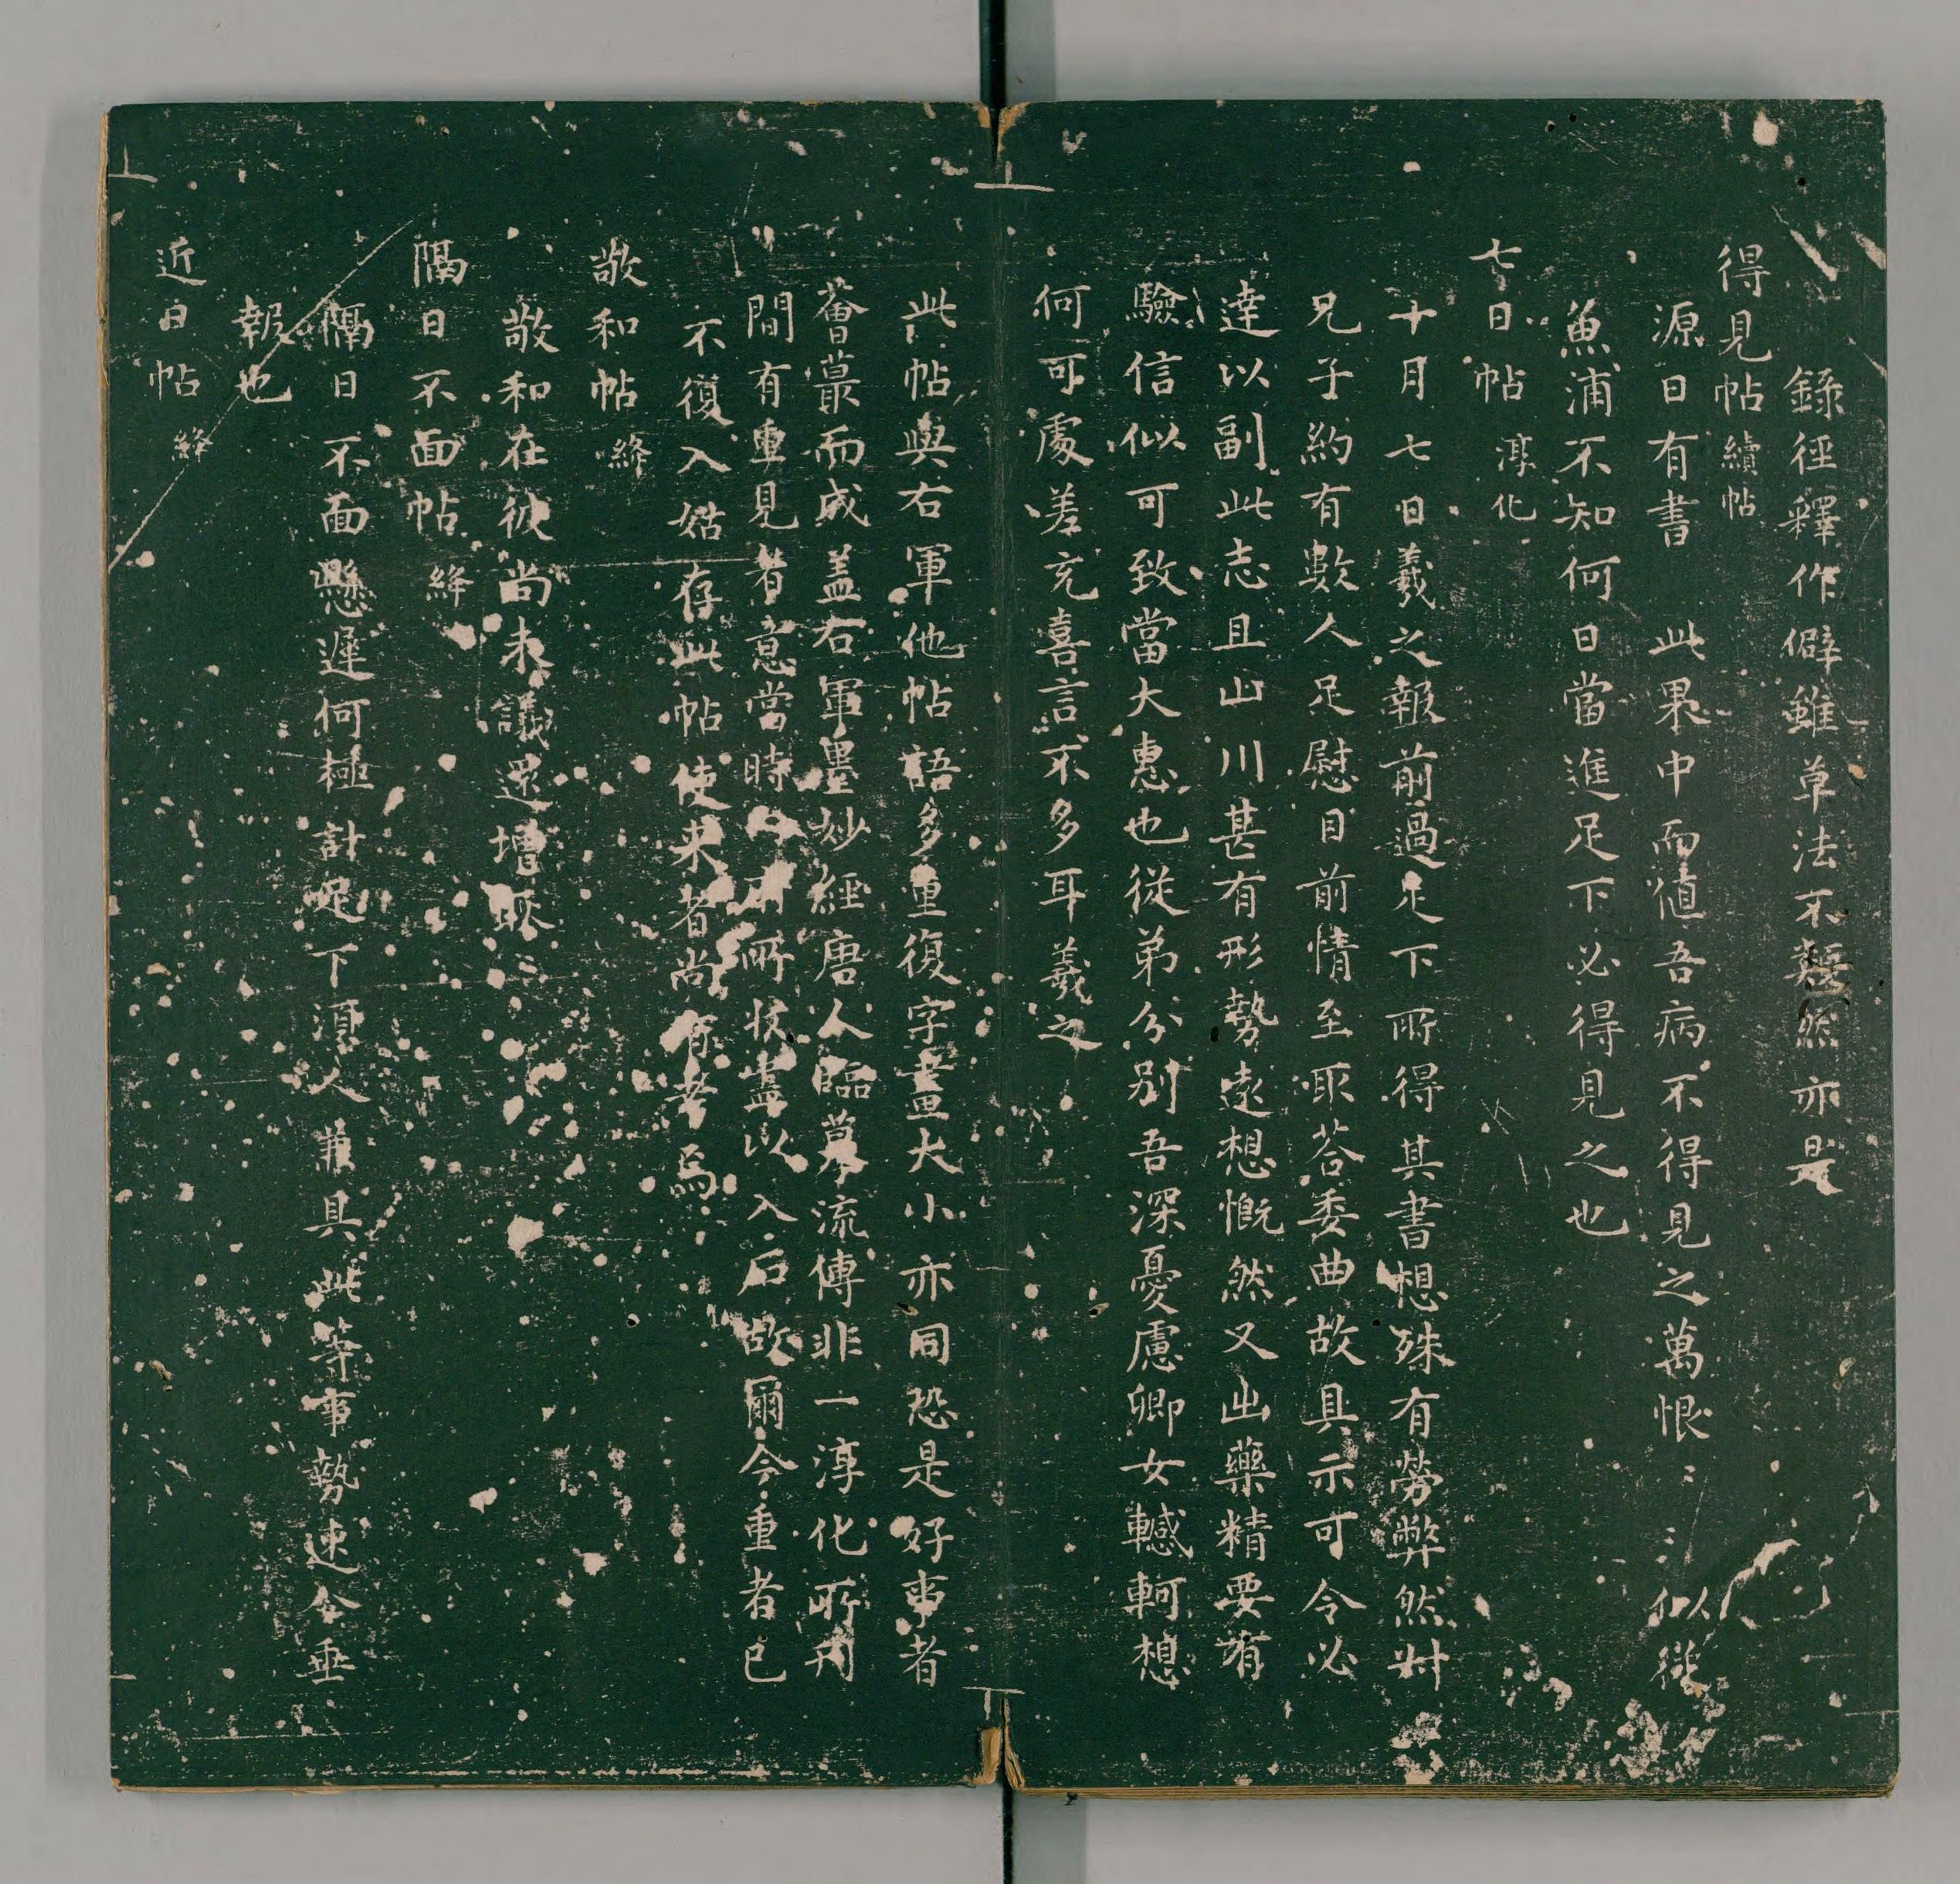 錄徑釋作僻雖草法不類然亦是
得見帖 續帖
源日有書 此果中而值吾病不得見之萬恨〻 〻似從
魚浦不知何日當進足下必得見之也
七日帖 淳化
十月七日羲之報前過足下所得其書想殊有勞弊然叔
兄子約有數人足慰目前情至取荅委曲故具示可令必
達以副此志且山川甚有形勢遠想慨然又出藥精要有
驗信似可致當大惠也從弟分別吾深憂慮卿女轗軻想
何可處差充喜言不多耳羲之
此帖與右軍他帖語多重復字畫大小亦同恐是好事者
薈蕞而成盖右軍墨妙經唐人臨摹流傳非一淳化所刊
間有重見者意當時所收盡以入石故爾今重者已
不復入姑存此帖使来者尚有考焉
敬和帖 絳
敬和在彼尚未議還增耿
隔日不面帖 絳
隔日不面懸遲何極計足下須人兼具此等事勢速令垂
報也
近日帖 絳